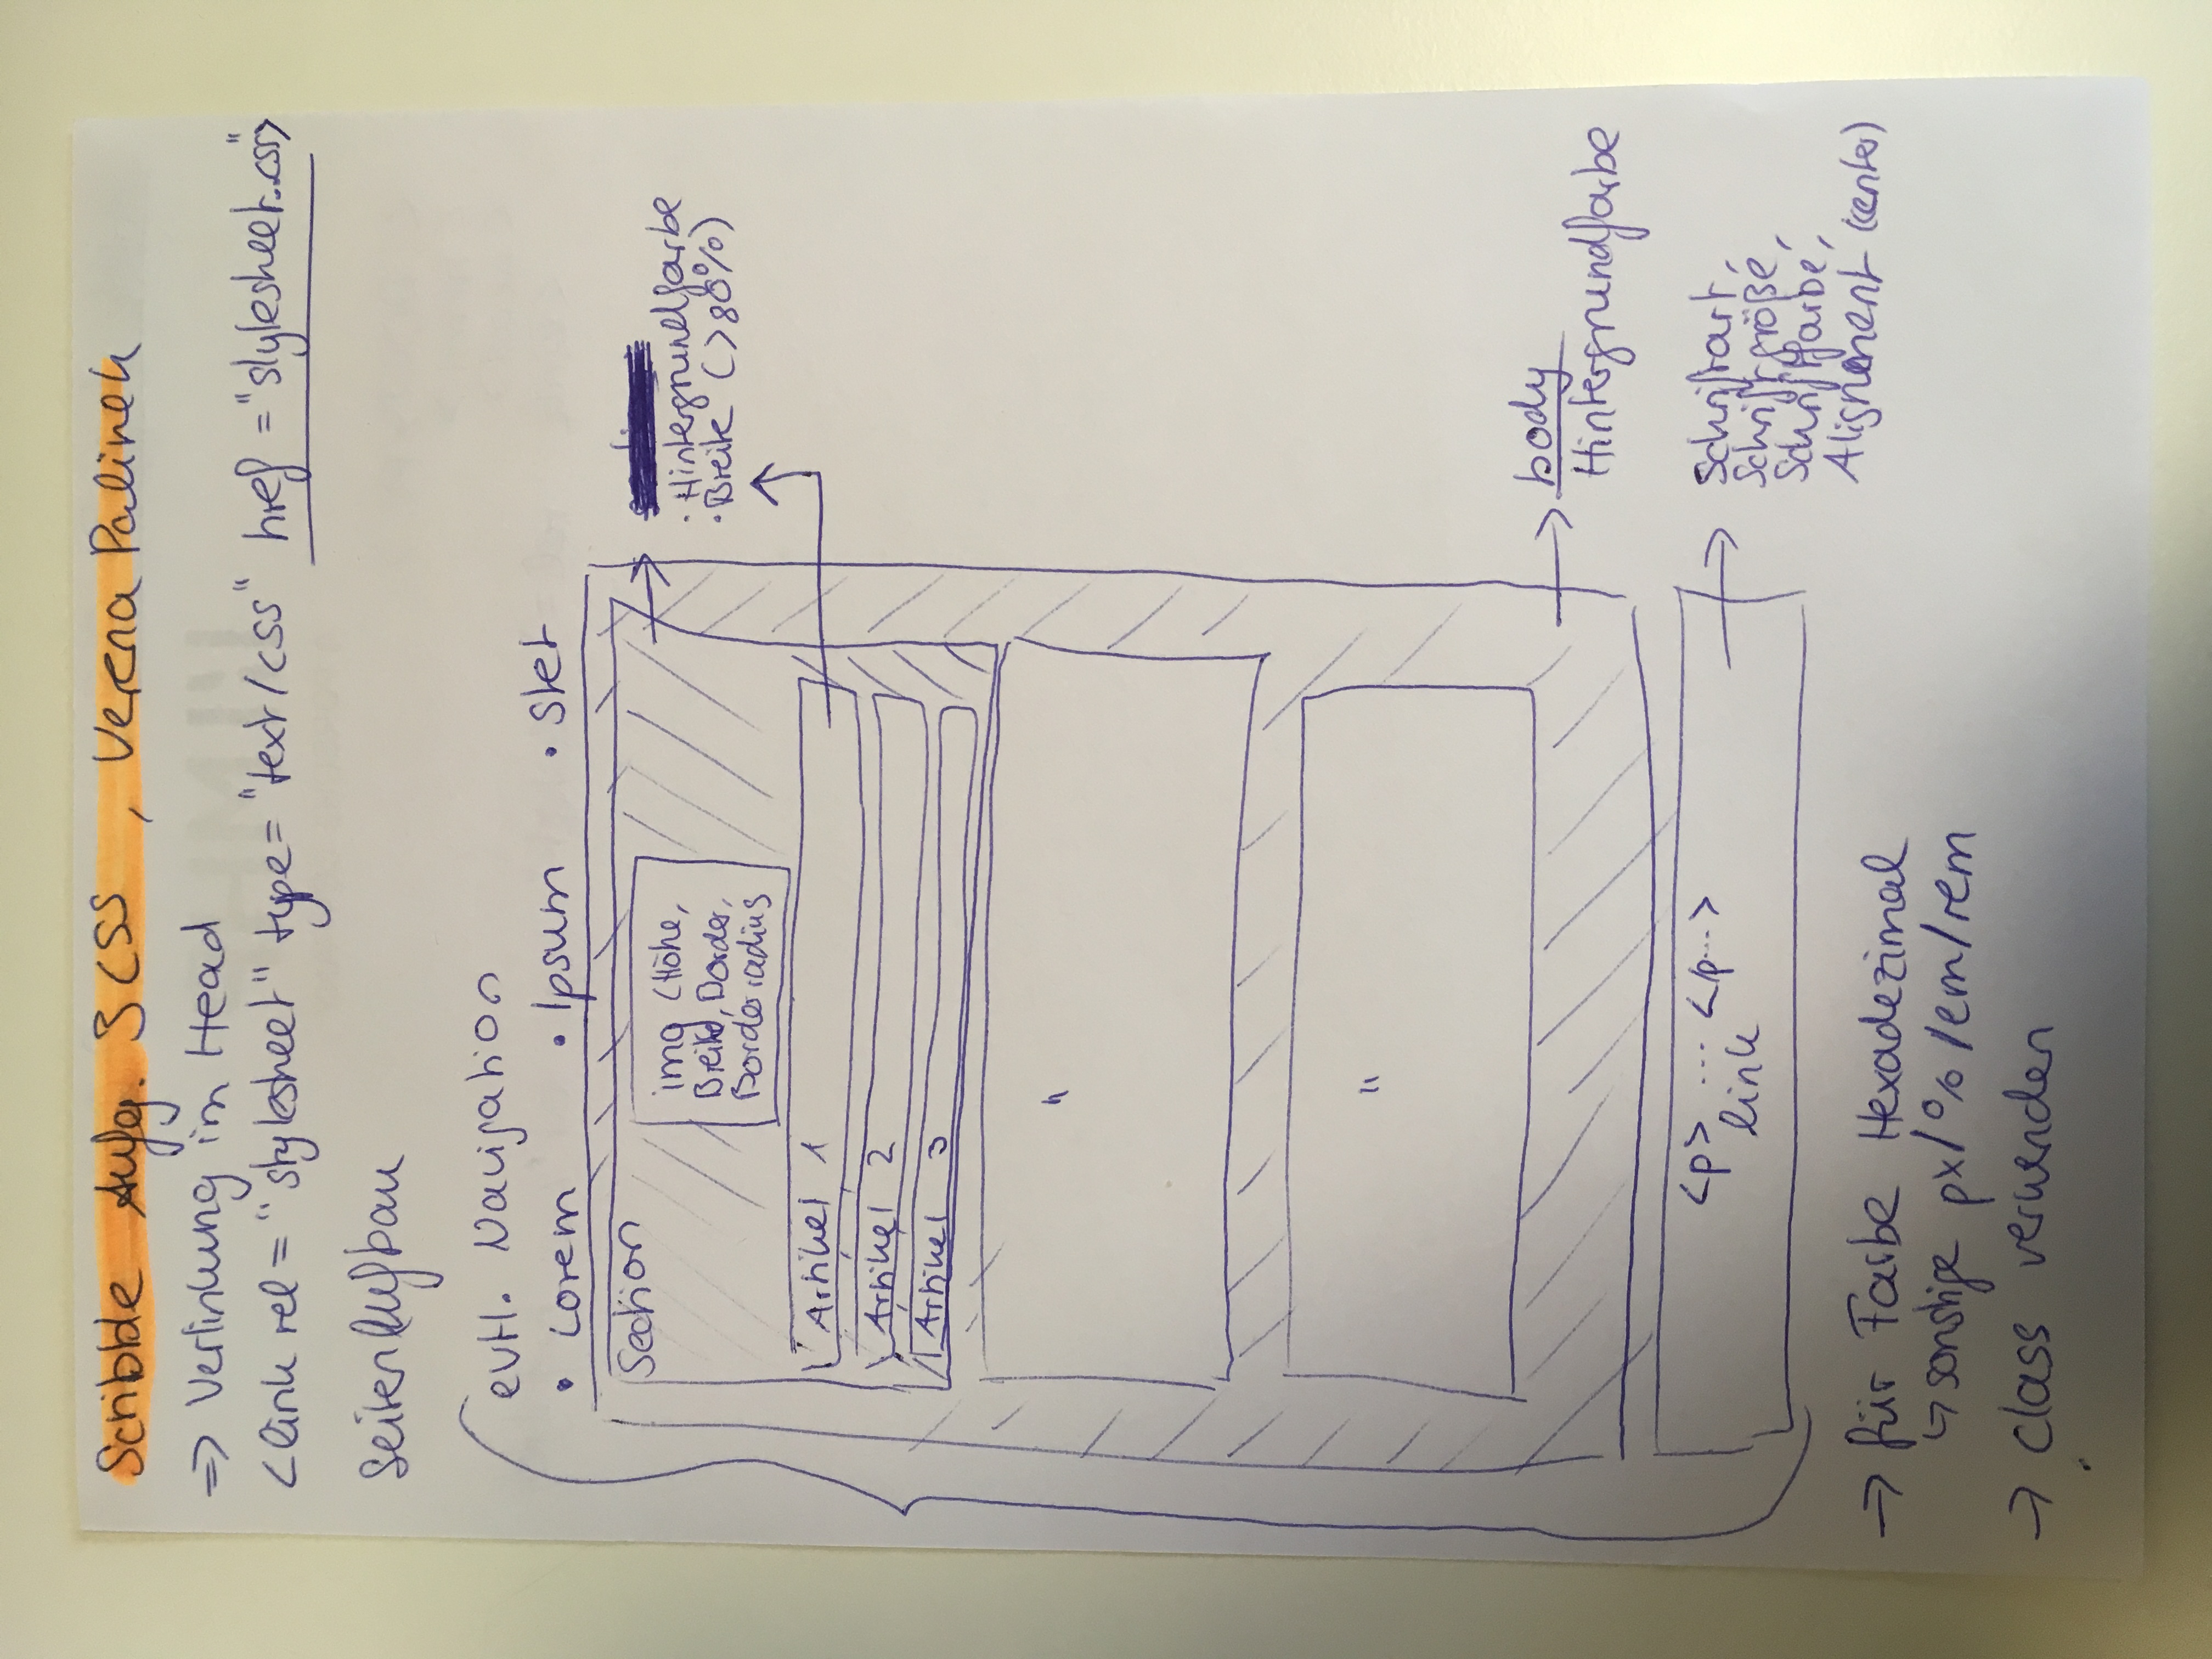 Scribble Aufg. 3 CSS, Verena Palinek
=> Verlinkung im Head
<link rel = "stylesheet" type= "text/css" href ="stylesheet.css">
Seitenaufbau
evtl. Navigation
• Lorem • Ipsum • Stet
Section
img (Höhe,
Breite, Border,
Borderradius
· Hintergrundfarbe
· Breite (>80%)
Artikel 1
Artikel 2
Artikel 3
"
"
body
Hintergrundfarbe
<p> ... </p...>
link
Schriftart,
Schriftgröße,
Schriftfarbe,
Alignment (center)
-> für Farbe Hexadezimal
↳ sonstige px/%/em/rem
-> class verwenden